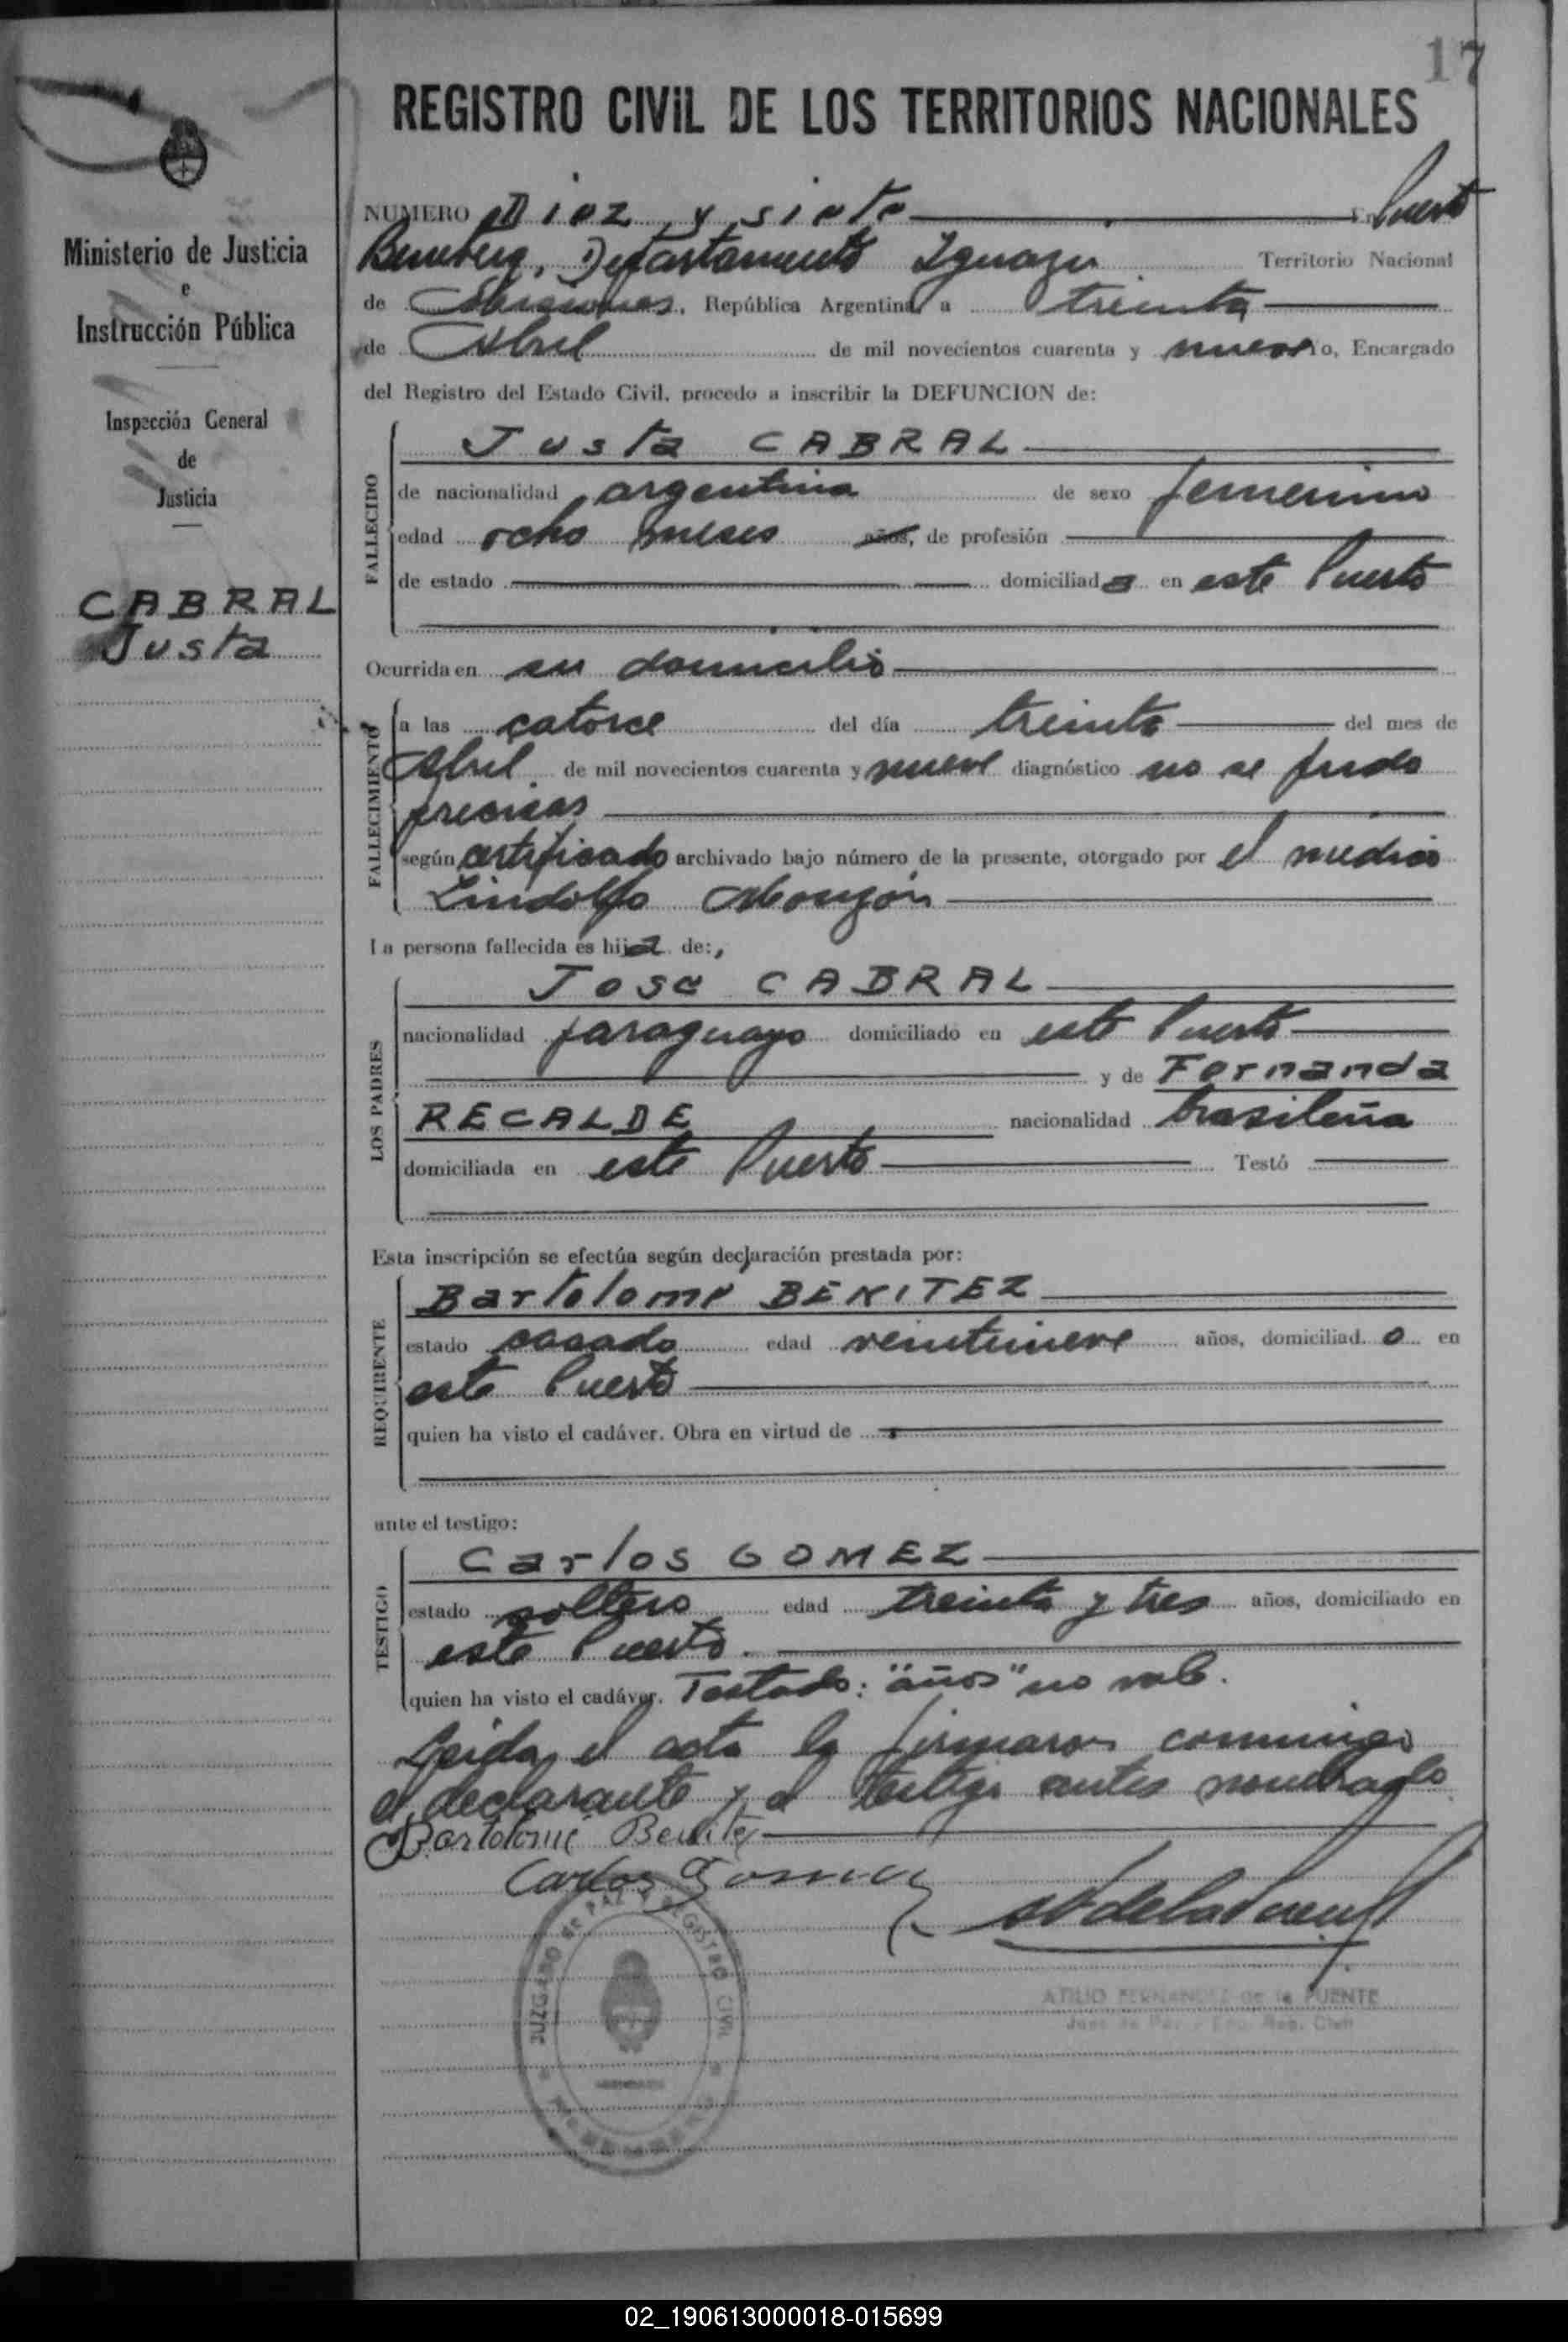 17
REGISTRO CIVIL DE LOS TERRITORIOS NACIONALES
Ministerio de Justicia
e
Instrucción Pública
Inspección General
de
Justicia
CABRAL
Justa
NUMERO Diez y siete En Puerto
Bemberg, Departamento Iguazú Territorio Nacional
de Misiones, República Argentina, a treinta
de Abril de mil novecientos cuarenta y nueve yo, Encargado
del Registro del Estado Civil, procedo a inscribir la DEFUNCION de:
FALLECIDO
Justa CABRAL
de nacionalidad argentina de sexo femenino
edad ocho meses años, de profesión
de estado domiciliada en este Puerto
Ocurrida en su domicilio
FALLECIMIENTO
a las catorce del día treinta del mes de
Abril de mil novecientos cuarenta y nueve diagnóstico no se pudo
precisar
según certificado archivado bajo número de la presente, otorgado por el médico
Lindolfo Monzón
La persona fallecida es hija de:
LOS PADRES
Jose CABRAL
nacionalidad paraguayo domiciliado en este Puerto
y de Fernanda
RECALDE nacionalidad brasileña
domiciliada en este Puerto Testó
Esta inscripción se efectúa según declaración prestada por:
REQUIRENTE
Bartolome BENITEZ
estado casado edad veintinueve años, domiciliado en
este Puerto
quien ha visto el cadáver. Obra en virtud de
ante el testigo:
TESTIGO
Carlos GOMEZ
estado soltero edad treinta y tres años, domiciliado en
este Puerto.
quien ha visto el cadáver. Testado: "años" no vale.
Leida el acta la firmaron conmigo
el declarante y el testigo antes nombrado
Bartolomé Benitez
Carlos Gomez
JUZGADO DE PAZ Y REGISTRO CIVIL
ATILIO FERNANDEZ de la FUENTE
Juez de Paz y Enc. Reg. Civil
02_190613000018-015699